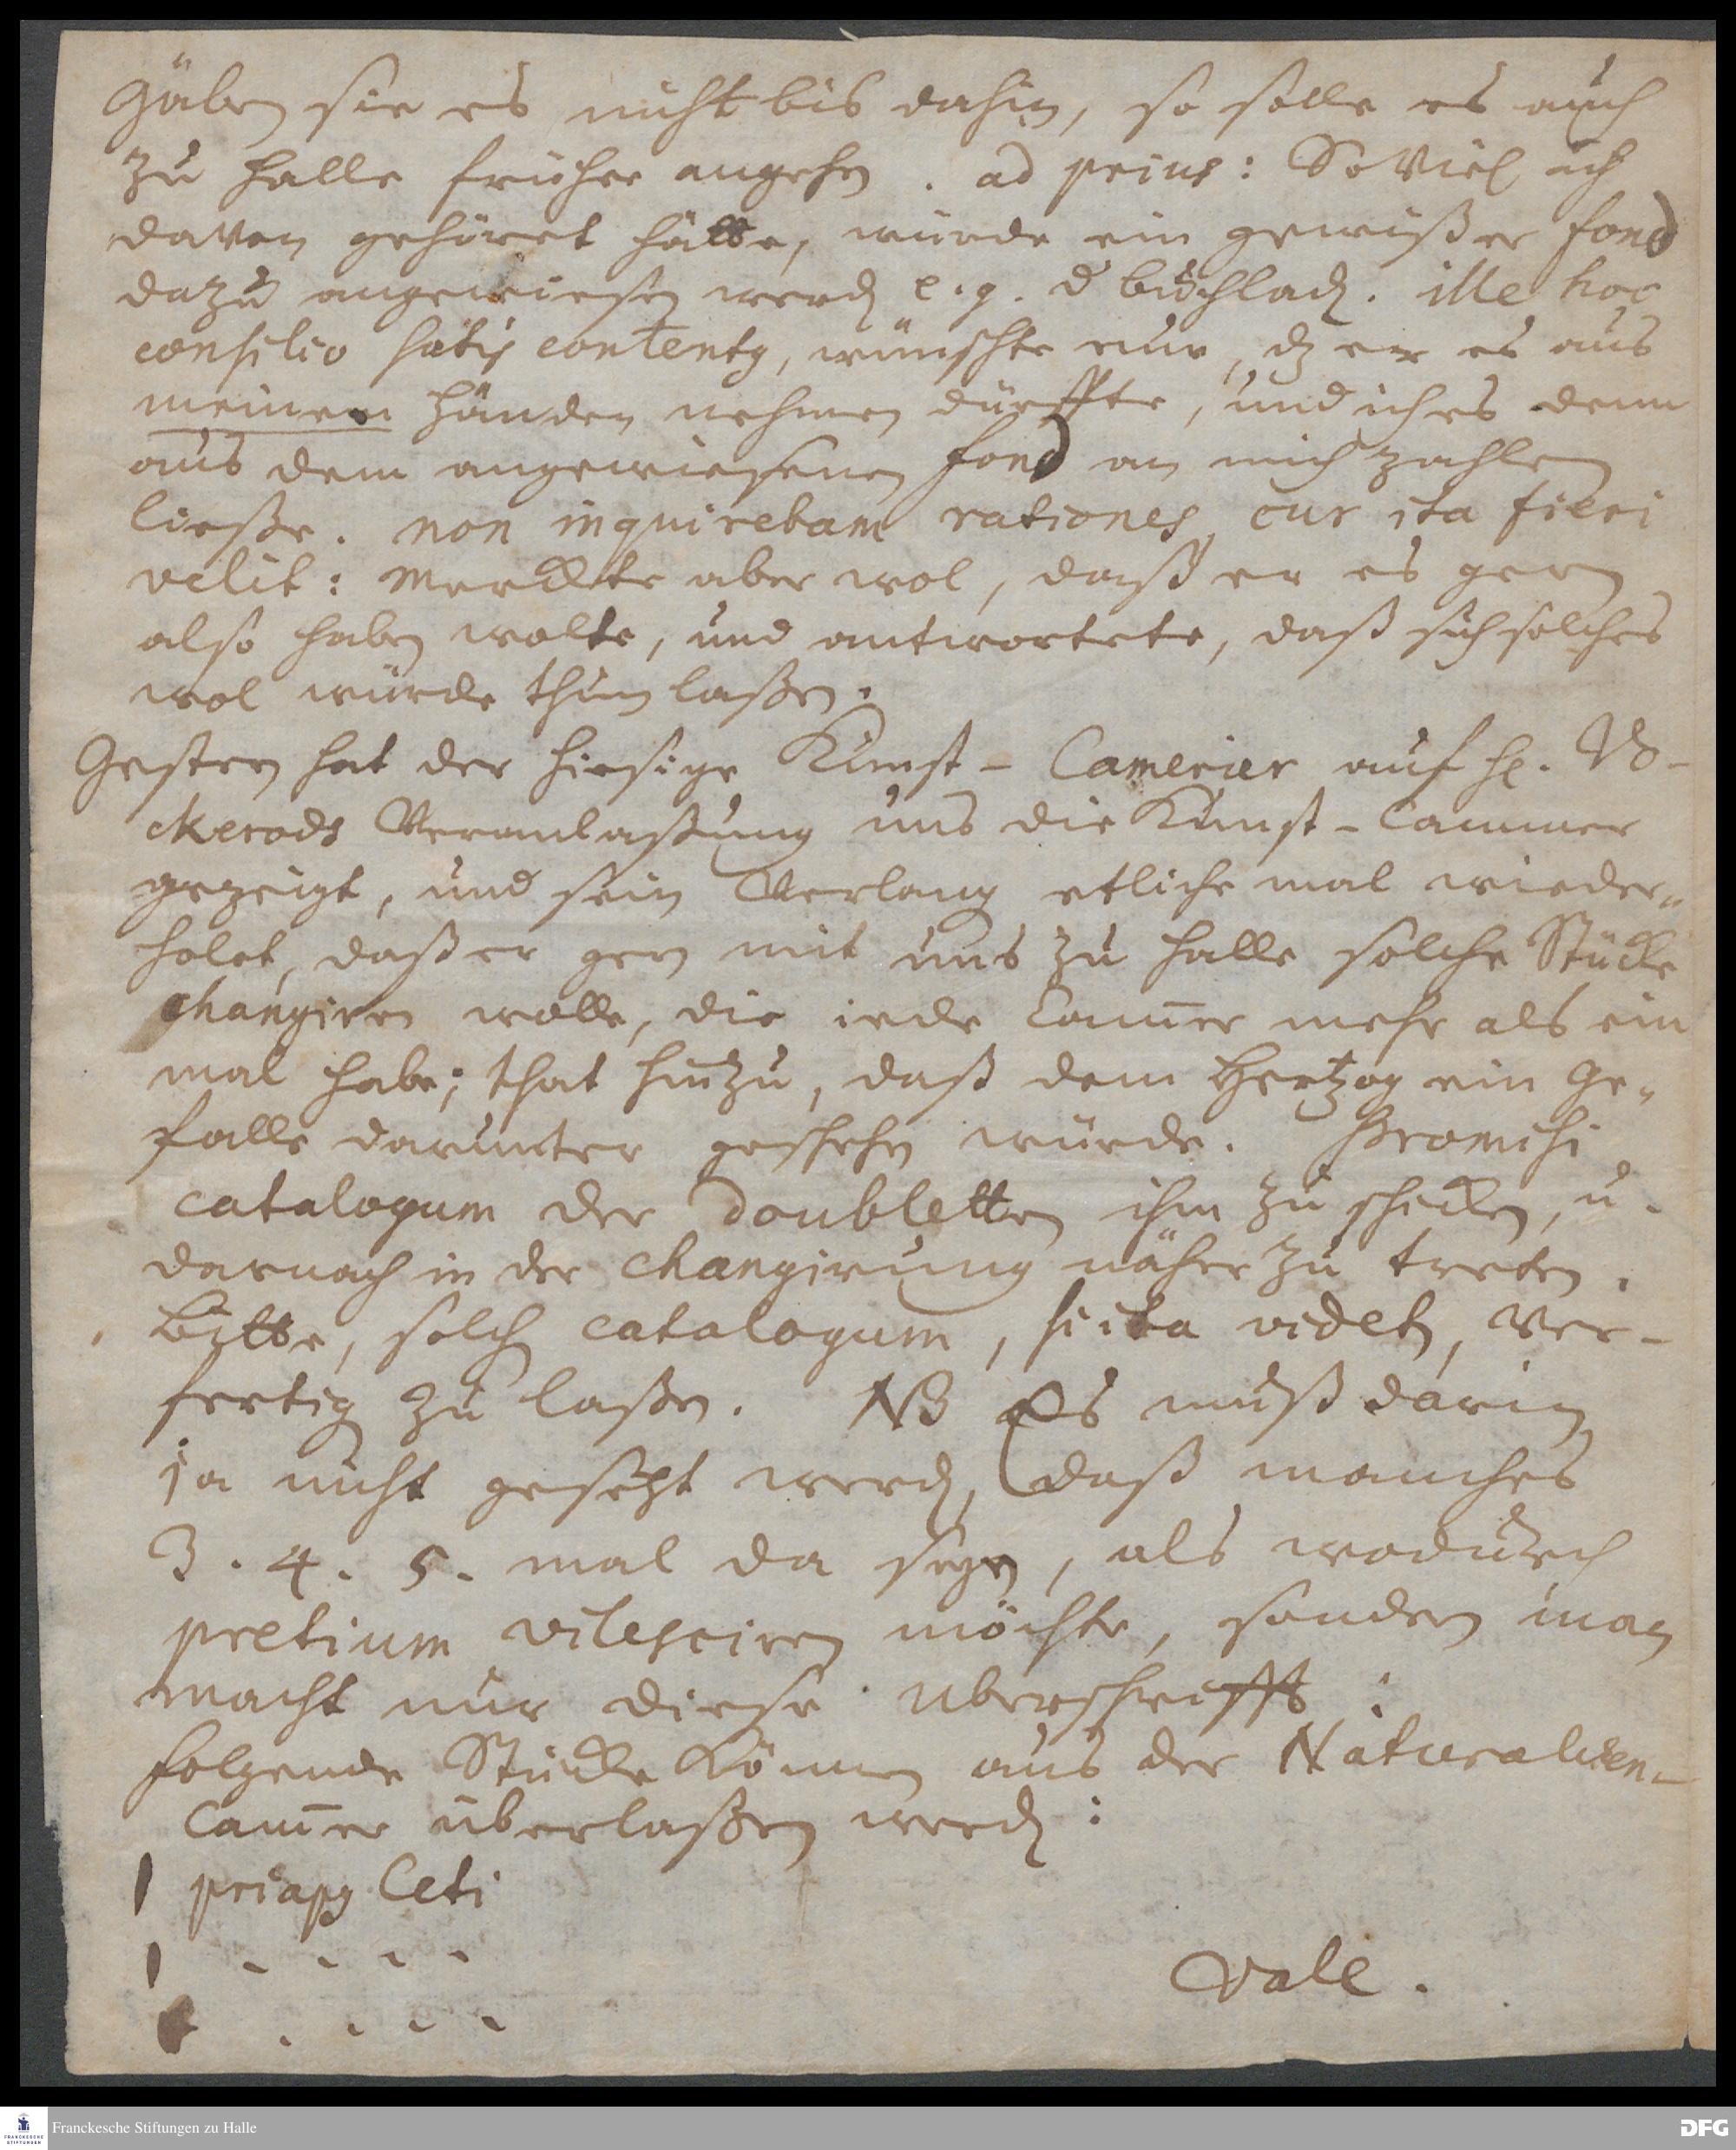 Gäben sie es nicht bis dahin, so solle es auch
zu Halle früher angehen. ad prius: So viel ich
davon gehöret hätte, würde ein gewißer fond
dazu angewiesen werdẽ e. g. d̃ buchladẽ. ille hoc
consilio satis contentꝰ, wünschte nur, dz er es aus
meinen Händen nehmen dürffte, und ich es denn
aus dem angewiesenen fond an mich zahlen
ließe. non inquirebam rationes, cur ita fieri
velit: merckte aber wol, daß er es gern
also haben wolte, und antwortete, daß sich solches
wol würde thun laßen.
Gestern hat der hiesige Kunst-Camerier auf H. Vo-
ckerods Veranlaßung uns die Kunst-Cammer
gezeigt, und sein Verlang etliche mal wieder-
holet, daß er gern mit uns zu Halle solche Stücke
changiren wolle, die iede Cam̃er mehr als ein
mal habe; that hinzu, daß dem Hertzog ein Ge-
falle darunter geschehen würde. Promisi
catalogum der Doubletten ihm zu schicken, u.
darnach in der changirung näher zu treten.
Bitte, solch catalogum, si ita videt, ver-
fertig zu laßen. NB Es muß darin
ja nicht gesetzt werdẽ, daß manches
3. 4. 5. mal da seyn, als wodurch
pretium vilesciren möchte, sondern man
macht nur diese uberschrifft:
folgende Stücke können aus der Naturalien-
Cam̃er überlaßen werdẽ:
1 priapꝰ Ceti
1 - - - -
- - - -
Vale.
Franckesche Stiftungen zu Halle
FRANCKESCHE
STIFTUNGEN
DFG